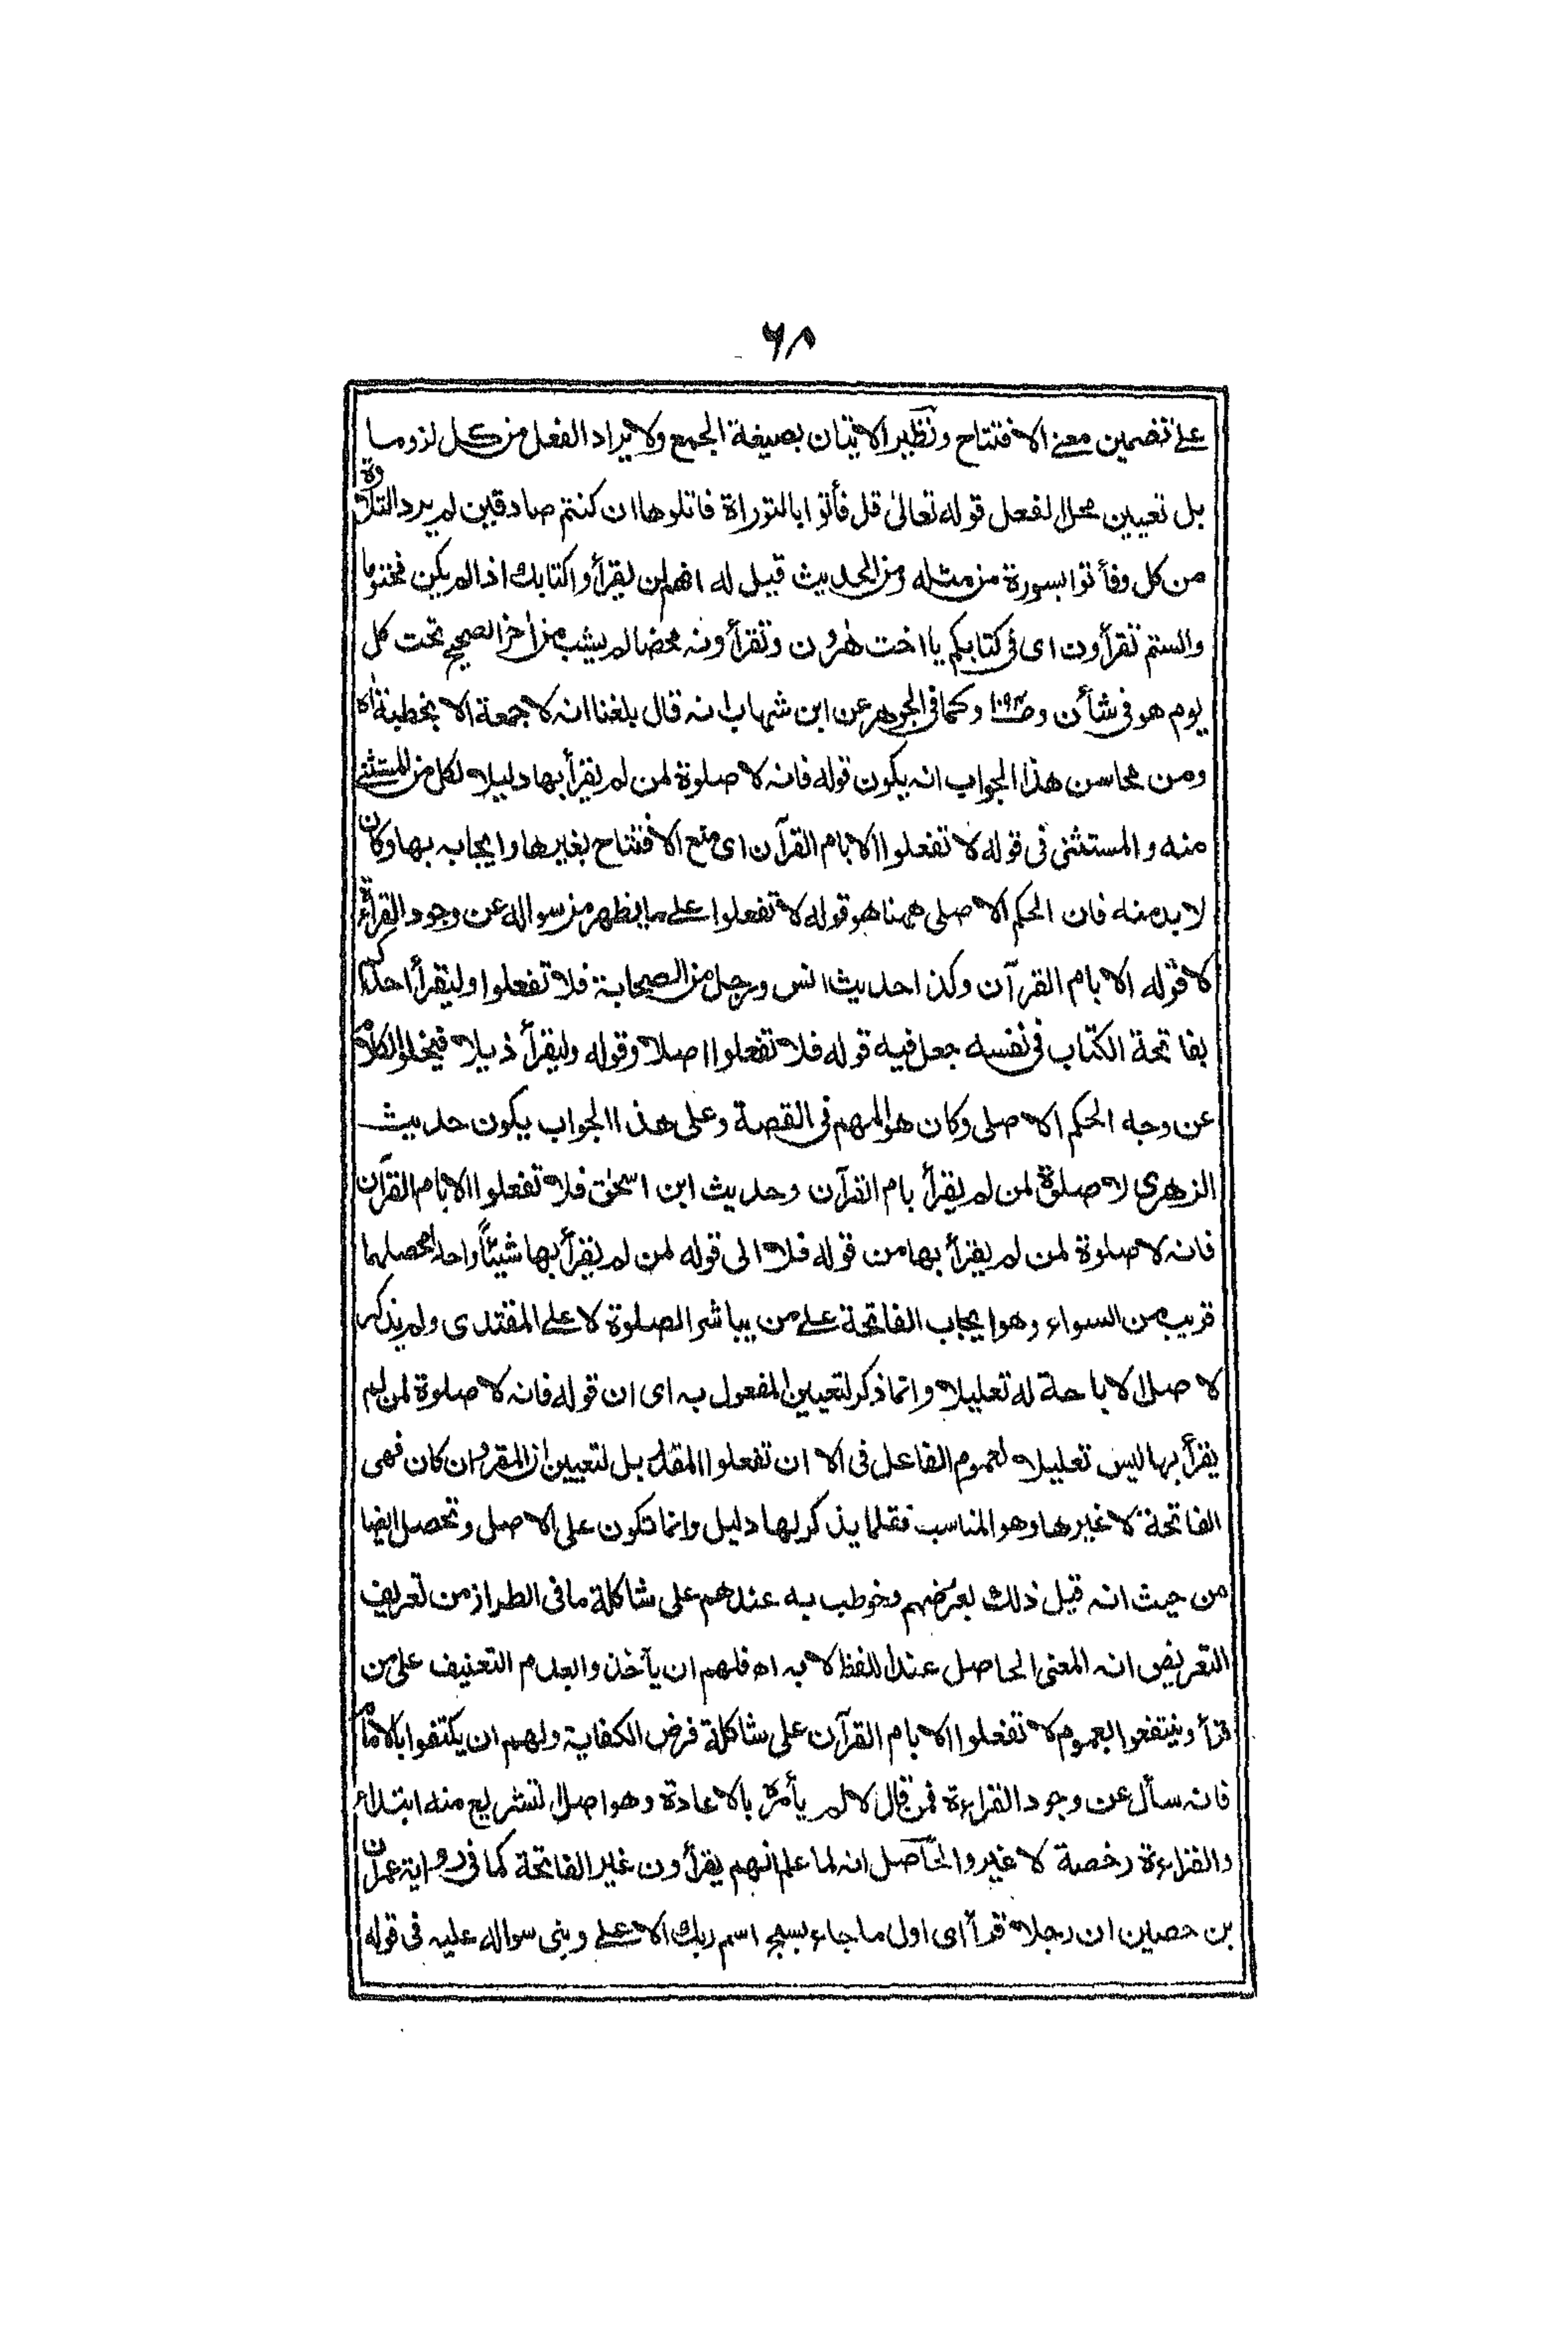 ۶۸
على تضمين معنى الافتتاح ونظير الاتيان بصيغة الجمع ولا يراد الفعل من كل لزوما
بل تعيين محل الفعل قوله تعالى قل فأتوا بالتوراة فاتلوها ان كنتم صادقين لم يرد التلاوة
من كل وفأتوا بسورة من مثله ومن الحديث قيل له انهم لن يقرأوا كتابك اذا لم يكن مختوما
والستم تقرأون اى فى كتابكم يا اخت هٰرون وتقرأونه محضا لم يشب من اخر الصحيح تحت كل
يوم هو فى شأن وص۱۰۹۴ وكما فى الجوهر عن ابن شهاب انه قال بلغنا انه لا جمعة الا بخطبة اه
ومن محاسن هذا الجواب انه يكون قوله فانه لا صلوة لمن لم يقرأ بها دليلا لكل من المستثنى
منه والمستثنى فى قوله لا تفعلوا الا بام القرآن اى منع الافتتاح بغيرها وايجابه بها وكان
لا بد منه فان الحكم الاصلى ههنا هو قوله لا تفعلوا على ما يظهر من سواله عن وجود القراءة
لا قوله الا بام القرآن وكذا حديث انس ورجل من الصحابة فلا تفعلوا وليقرأ احدكم
بفاتحة الكتاب فى نفسه جعل فيه قوله فلا تفعلوا اصلا وقوله وليقرأ ذيلا فيخلو الكلام
عن وجه الحكم الاصلى وكان هو المهم فى القصة وعلى هذا الجواب يكون حديث
الزهرى لا صلوة لمن لم يقرأ بام القرآن وحديث ابن اسحٰق فلا تفعلوا الا بام القرآن
فانه لا صلوة لمن لم يقرأ بها من قوله فلا الى قوله لمن لم يقرأ بها شيئاً واحدا محصلهما
قريب من السواء وهو ايجاب الفاتحة على من يباشر الصلوة لا على المقتدى ولم يذكر
لا صل الاباحة له تعليلا وانما ذكر لتعيين المفعول به اى ان قوله فانه لا صلوة لمن لم
يقرأ بها ليس تعليلا لعموم الفاعل فى الا ان تفعلوا المقدر بل لتعيين ان المقرو ان كان فهى
الفاتحة لا غيرها وهو المناسب فقلما يذكر لها دليل وانما تكون على الاصل وتحصل ايضا
من حيث انه قيل ذلك بعرضهم وخوطب به عندهم على شاكلة ما فى الطراز من تعريف
التعريض انه المعنى الحاصل عند اللفظ لا به اه فلهم ان يأخذوا بعدم التعنيف على من
قرأ وينتفعوا بعموم لا تفعلوا الا بام القرآن على شاكلة فرض الكفاية ولهم ان يكتفوا بالامام
فانه سأل عن وجود القراءة فمن قال لا لم يأمره بالاعادة وهو اصل التشريع منه ابتداء
والقراءة رخصة لا غير والحاصل انه لما علم انهم يقرأون غير الفاتحة كما فى رواية عمران
بن حصين ان رجلا قرأ اى اول ما جاء بسبح اسم ربك الاعلى وبنى سواله عليه فى قوله